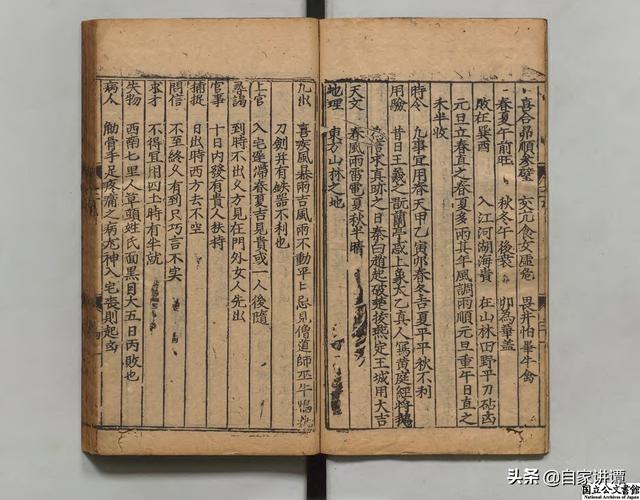 喜合昴順參壁 交亢食女虛危 畏井怕畢牛禽
春夏午前旺 秋冬午後衰 卯為華蓋
敗在巽酉 入江河湖海貴 在山林田野平 刀砧凶
元旦立春直之春夏多雨其年風調雨順元旦重午日直之
木半收
時令 凡事宜用春天甲乙寅卯春冬吉夏平平秋不利
用驗 昔日王羲之翫蘭亭感上界太乙真人寫黃庭經將換
求真跡之日泰白道起破樊後燕定王城用大吉
天文 春風雨雷電夏秋半時
地理 東方山林之地
九出 喜疾風暴雨吉風雨不動平上忌見僧道師巫牛鴨
刀劍井有鉄器不利也
上官 入宅坐帰春夏吉見貴或一人後隨
尋謁 到時不出义方見在門外女人先出
官事 十日內發有貴人扶持
捕捉 日出時西方去不空
問信 不至終义有到只巧言不实
求才 不得宜用四土時有半就
失物 西南七里人草頭姓氏面黑目大五日丙敗也
病人 觔骨手足疼痛之病尪神入宅喪則起凶
头条 @自家讲谭
国立公文書館
National Archives of Japan